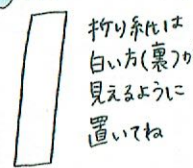 折り紙は
白い方(裏)の
見えるように
置いてね